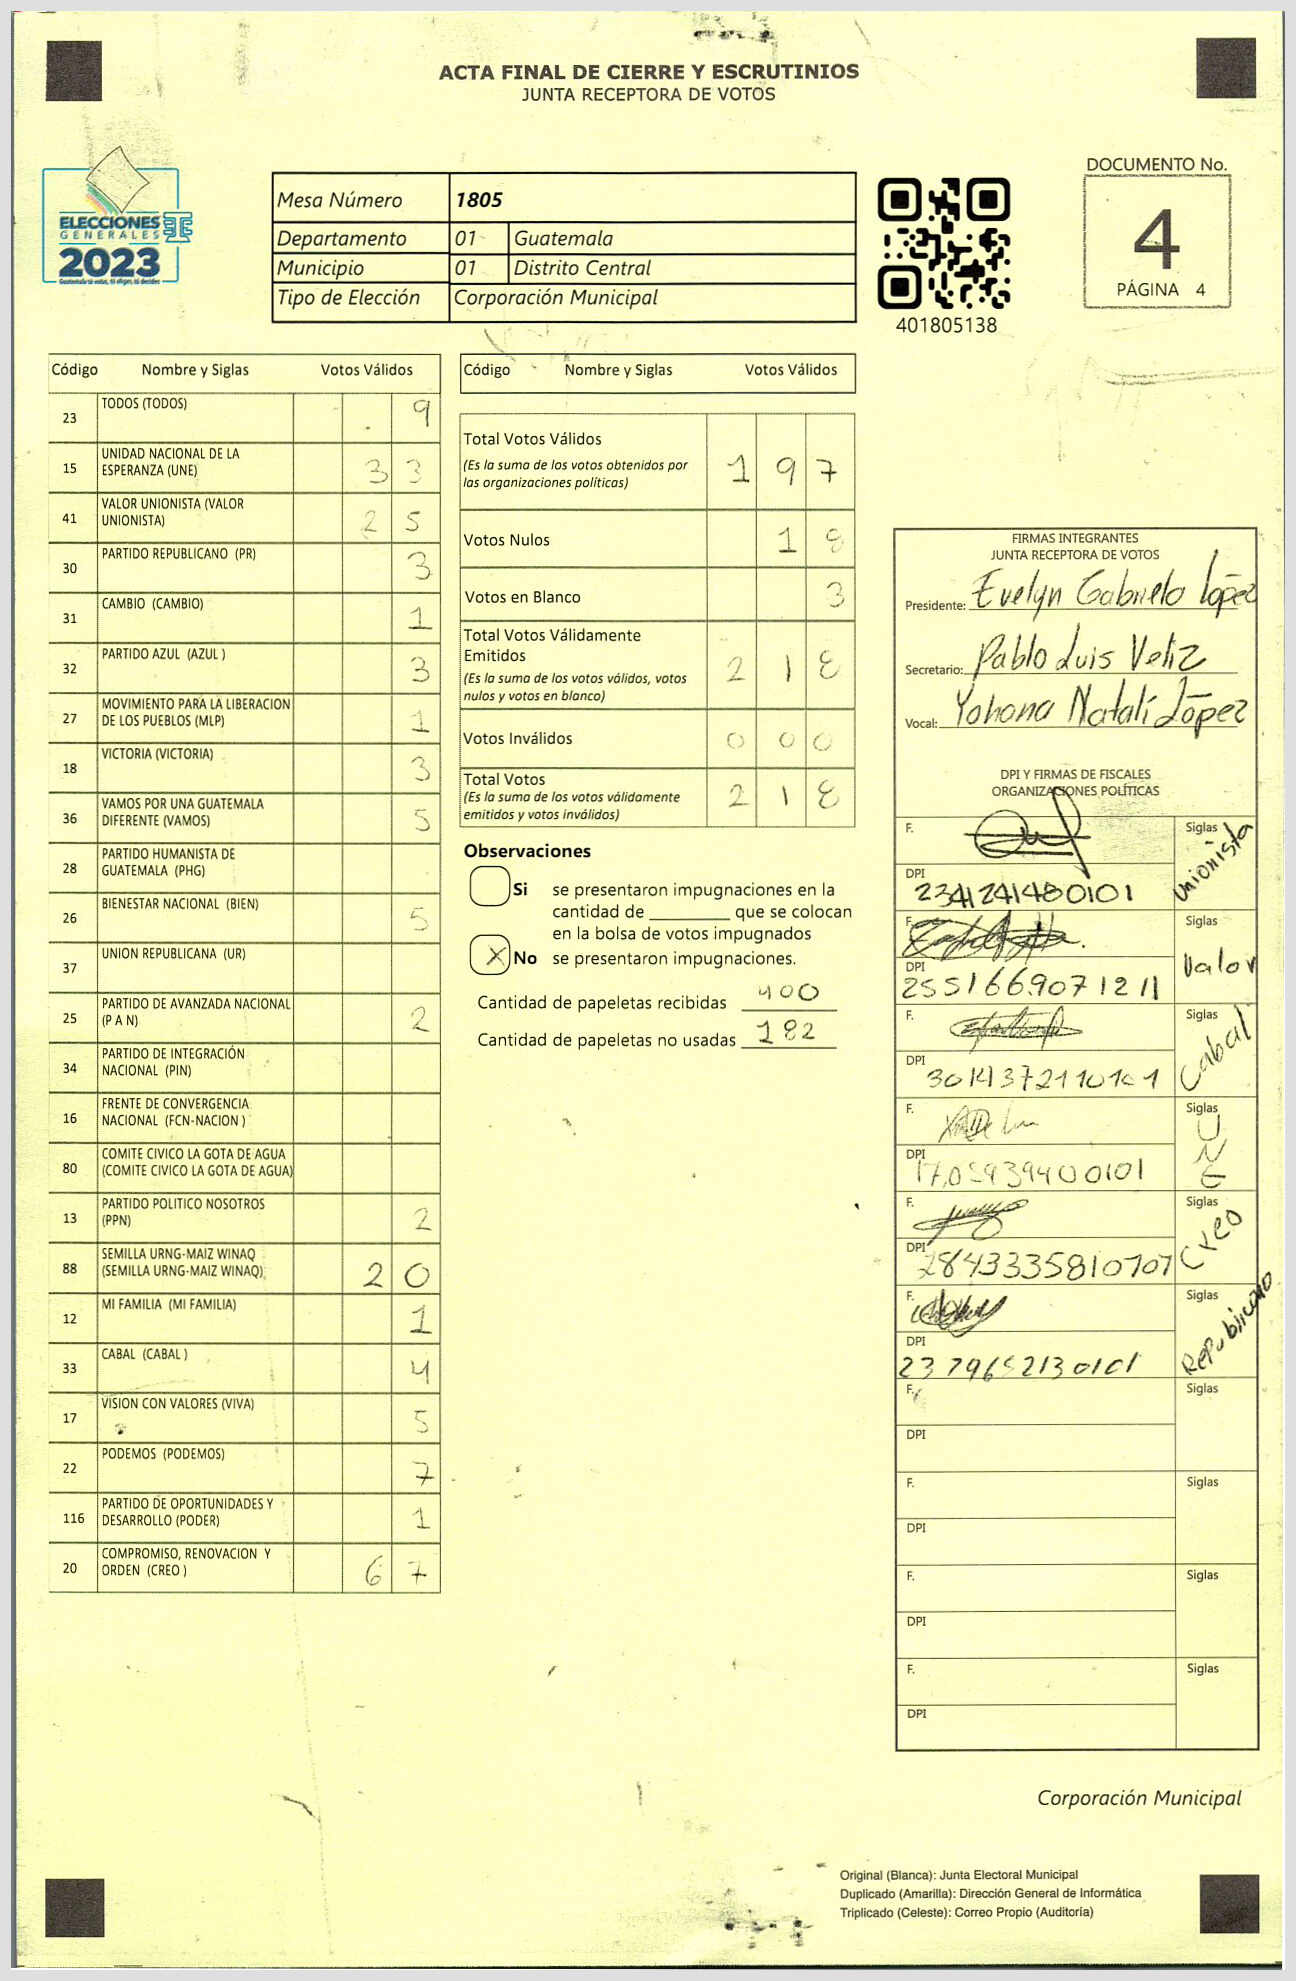 ACTA FINAL DE CIERRE Y ESCRUTINIOS
JUNTA RECEPTORA DE VOTOS
ELECCIONES
GENERALES
2023
Mesa Número 1805
Departamento 01 Guatemala
Municipio 01 Distrito Central
Tipo de Elección Corporación Municipal
401805138
DOCUMENTO No.
4
PÁGINA 4
Código Nombre y Siglas Votos Válidos
23 TODOS (TODOS) 9
15 UNIDAD NACIONAL DE LA
ESPERANZA (UNE) 33
41 VALOR UNIONISTA (VALOR
UNIONISTA) 25
30 PARTIDO REPUBLICANO (PR) 3
31 CAMBIO (CAMBIO) 1
32 PARTIDO AZUL (AZUL ) 3
27 MOVIMIENTO PARA LA LIBERACION
DE LOS PUEBLOS (MLP) 1
18 VICTORIA (VICTORIA) 3
36 VAMOS POR UNA GUATEMALA
DIFERENTE (VAMOS) 5
28 PARTIDO HUMANISTA DE
GUATEMALA (PHG)
26 BIENESTAR NACIONAL (BIEN) 5
37 UNION REPUBLICANA (UR)
25 PARTIDO DE AVANZADA NACIONAL
(P A N) 2
34 PARTIDO DE INTEGRACIÓN
NACIONAL (PIN)
16 FRENTE DE CONVERGENCIA
NACIONAL (FCN-NACION )
80 COMITE CIVICO LA GOTA DE AGUA
(COMITE CIVICO LA GOTA DE AGUA)
13 PARTIDO POLITICO NOSOTROS
(PPN) 2
88 SEMILLA URNG-MAIZ WINAQ
(SEMILLA URNG-MAIZ WINAQ) 20
12 MI FAMILIA (MI FAMILIA) 1
33 CABAL (CABAL ) 4
17 VISION CON VALORES (VIVA) 5
22 PODEMOS (PODEMOS) 7
116 PARTIDO DE OPORTUNIDADES Y
DESARROLLO (PODER) 1
20 COMPROMISO, RENOVACION Y
ORDEN (CREO ) 67
Código Nombre y Siglas Votos Válidos
Total Votos Válidos 197
(Es la suma de los votos obtenidos por
las organizaciones políticas)
Votos Nulos 18
Votos en Blanco 3
Total Votos Válidamente
Emitidos 218
(Es la suma de los votos válidos, votos
nulos y votos en blanco)
Votos Inválidos 000
Total Votos 218
(Es la suma de los votos válidamente
emitidos y votos inválidos)
Observaciones
Si se presentaron impugnaciones en la
cantidad de ________ que se colocan
en la bolsa de votos impugnados
X No se presentaron impugnaciones.
Cantidad de papeletas recibidas 400
Cantidad de papeletas no usadas 182
FIRMAS INTEGRANTES
JUNTA RECEPTORA DE VOTOS
Presidente: Evelyn Gabriela López
Secretario: Pablo Luis Veliz
Vocal: Yohona Natalí López
DPI Y FIRMAS DE FISCALES
ORGANIZACIONES POLÍTICAS
F. Siglas Unionista
DPI 2341241480101
F. Siglas Valor
DPI 2551669071211
F. Siglas Cabal
DPI
F. Siglas UNE
DPI
F. Siglas Creo
DPI 2843335810707
F. Siglas Republicano
DPI
F. Siglas
DPI
F. Siglas
DPI
F. Siglas
DPI
F. Siglas
DPI
Corporación Municipal
Original (Blanca): Junta Electoral Municipal
Duplicado (Amarilla): Dirección General de Informática
Triplicado (Celeste): Correo Propio (Auditoría)